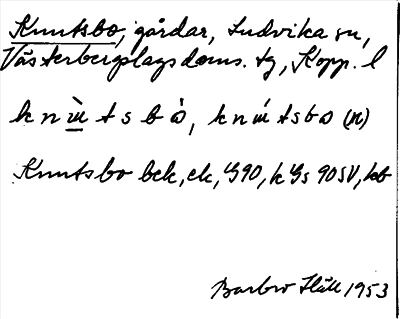 Knutsbo, gårdar, Ludvika sn,
Västerbergslags doms. tg, Kopp. l
knùtsbò, knútsbo (n)
Knutsbo bek, ek, G90, k Gs 90SV, kb
Barbro Häll 1953